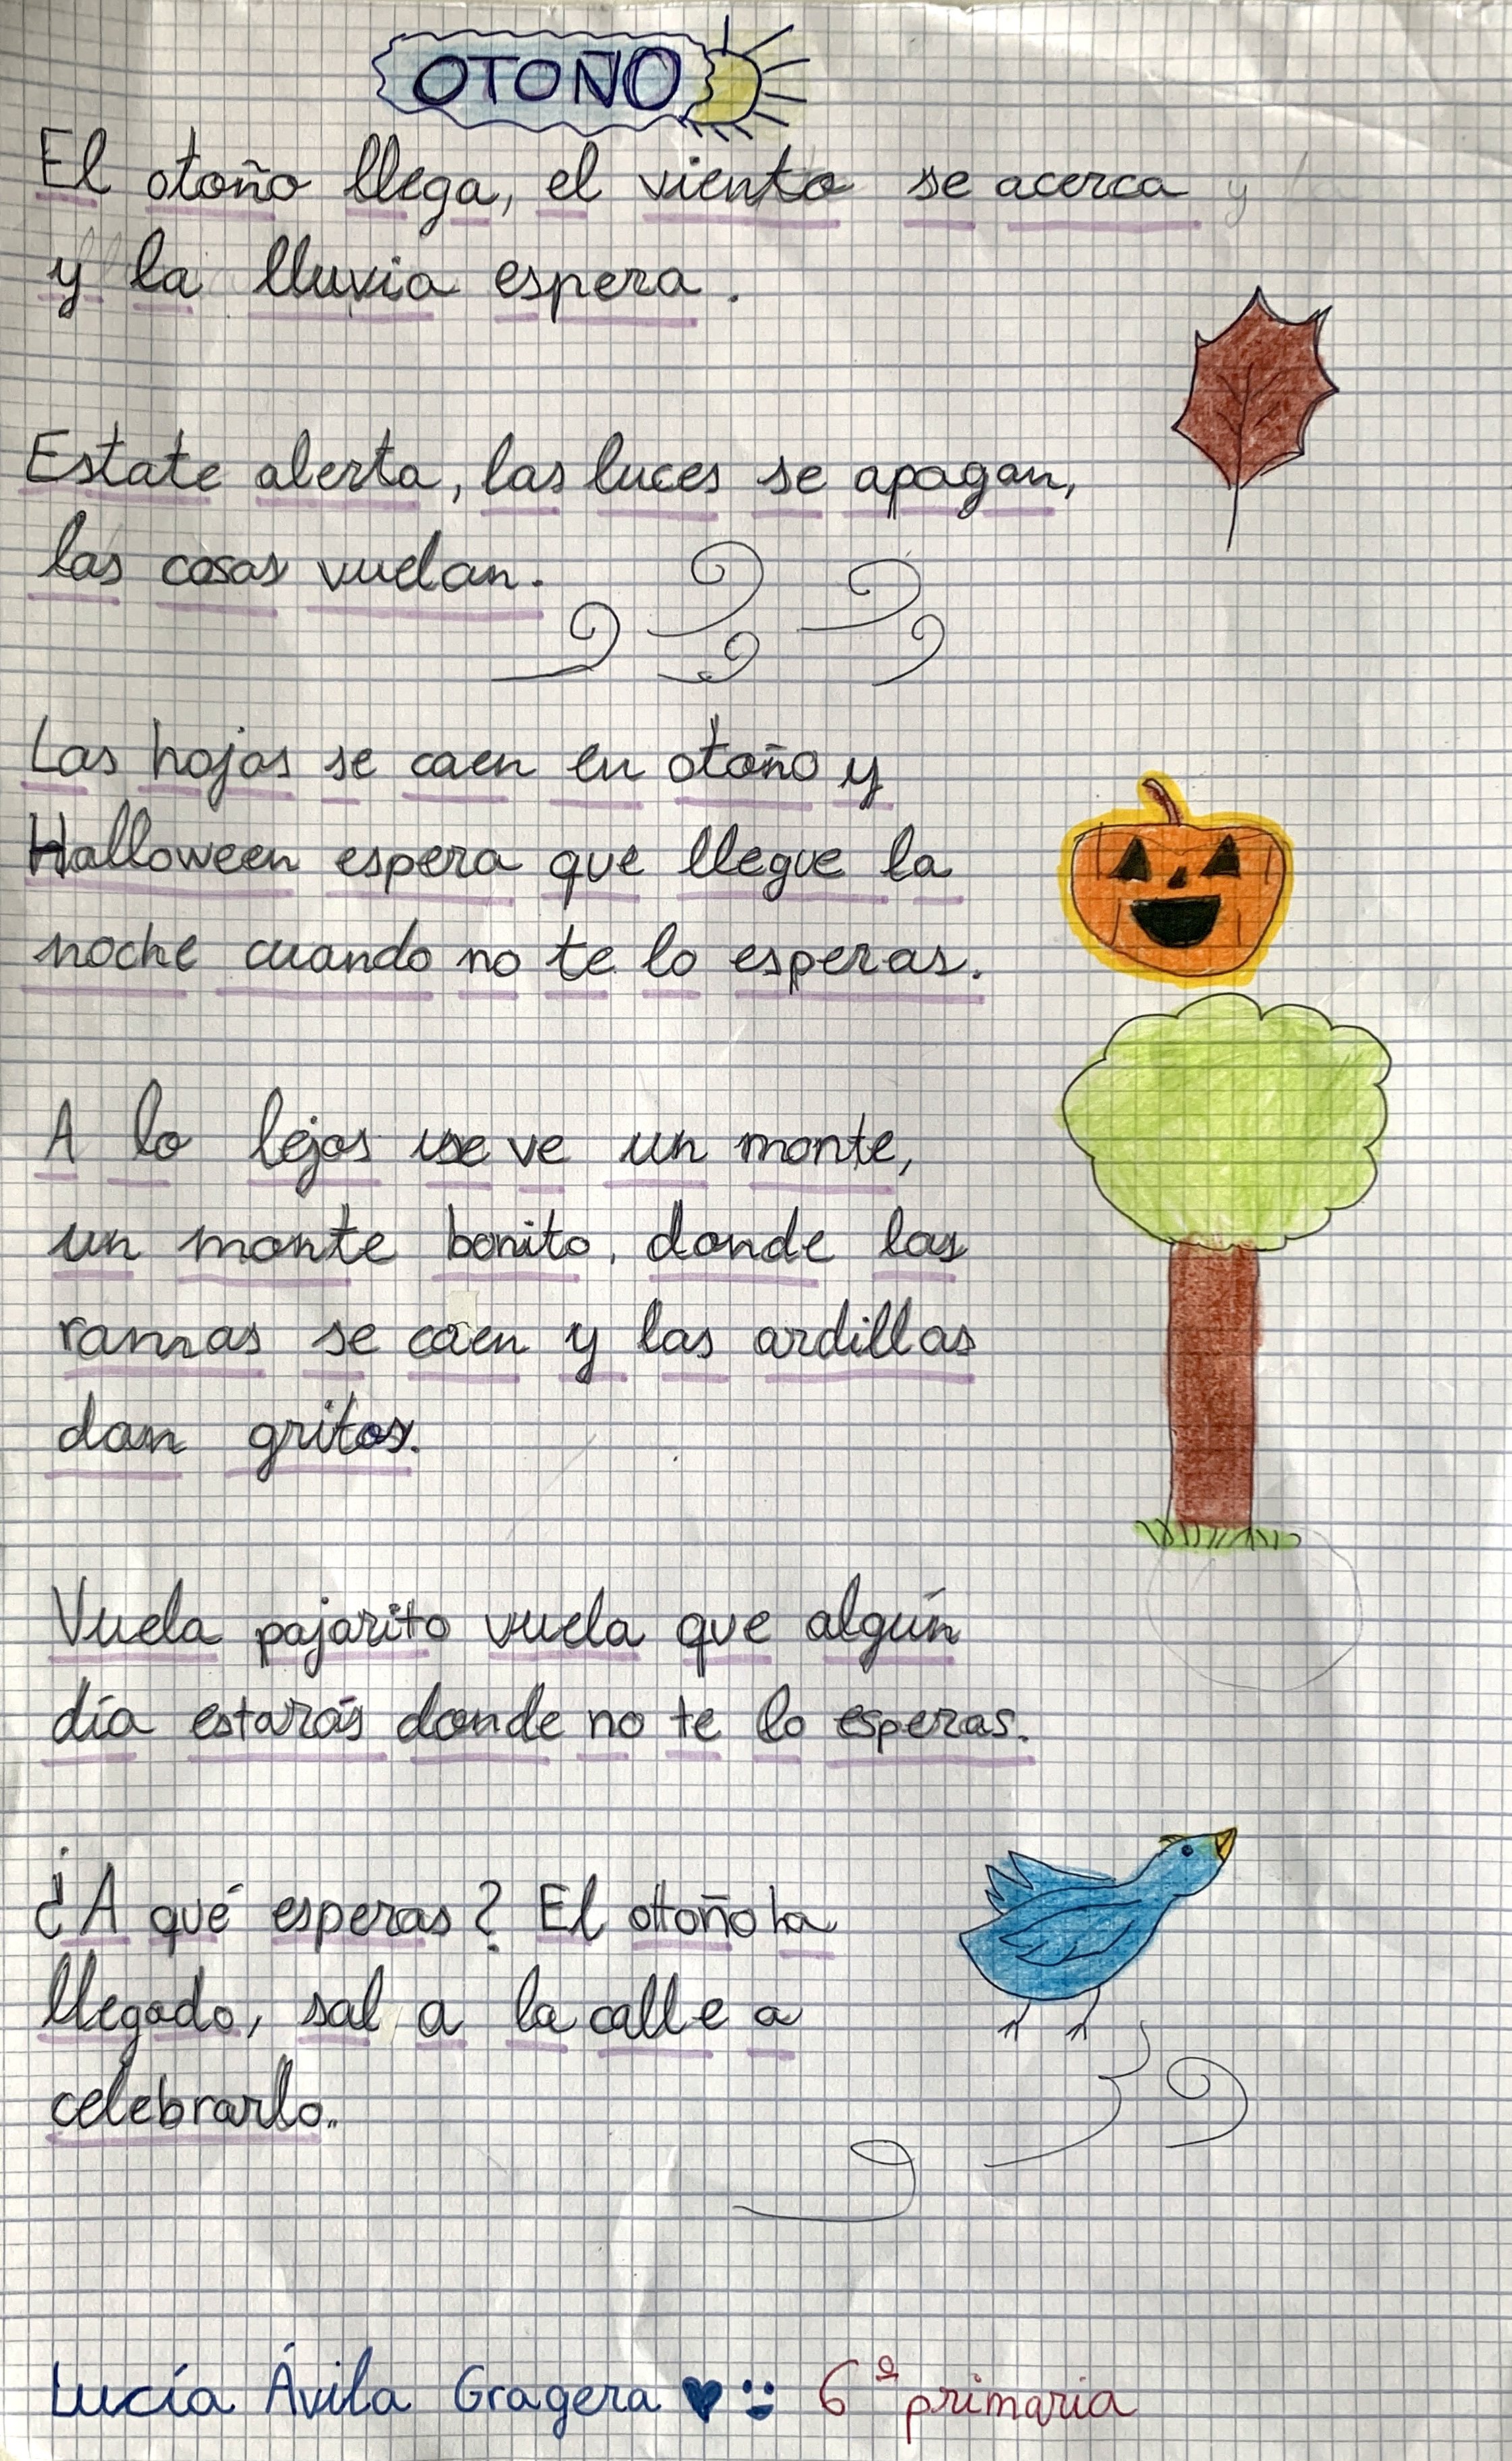 OTOÑO
El otoño llega, el viento se acerca
y la lluvia espera.
Estate alerta, las luces se apagan,
las cosas vuelan.
Las hojas se caen en otoño y
Halloween espera que llegue la
noche cuando no te lo esperas.
A lo lejos se ve un monte,
un monte bonito, donde las
ramas se caen y las ardillas
dan gritos.
Vuela pajarito vuela que algún
día estarás donde no te lo esperas.
¿A qué esperas? El otoño ha
llegado, sal a la calle a
celebrarlo.
Lucía Ávila Gragera 6º primaria